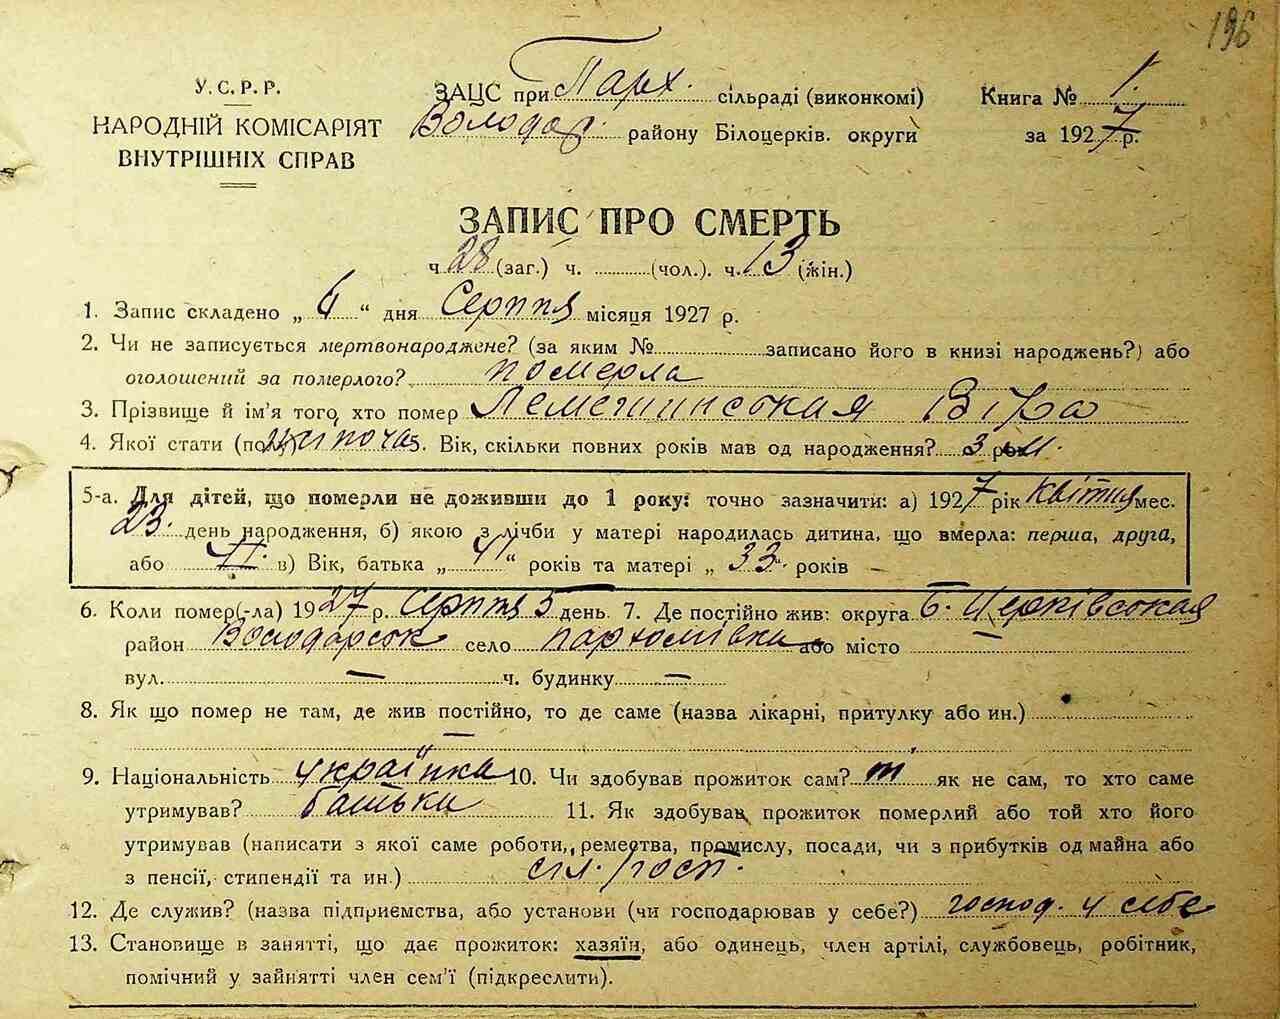 196
У.С.Р.Р.
НАРОДНІЙ КОМІСАРІЯТ
ВНУТРІШНІХ СПРАВ
ЗАЦС при Парх. сільраді (виконкомі)
Володар. району Білоцерків. округи
Книга № 1.
за 1927 р.
ЗАПИС ПРО СМЕРТЬ
ч 28 (заг.) ч. (чол.). ч. 13 (жін.)
1. Запис складено „ 6 “ дня Серпня місяця 1927 р.
2. Чи не записується мертвонароджене? (за яким № записано його в книзі народжень?) або
оголошений за померлого? померла
3. Прізвище й ім'я того, хто помер Лемешинської Віра
4. Якої стати (пол) жіноча 5. Вік, скільки повних років мав од народження? 3
5-а. Для дітей, що померли не доживши до 1 року: точно зазначити: а) 1927 рік Квітня мес.
23. день народження, б) якою з лічби у матері народилась дитина, що вмерла: перша, друга,
або в) Вік, батька „ “ років та матері „ 33. років
6. Коли помер(-ла) 1927 р. Серпня 5 день. 7. Де постійно жив: округа Б. Церківська
район Володарськ село Пархомівка або місто —
вул. — ч. будинку —
8. Як що помер не там, де жив постійно, то де саме (назва лікарні, притулку або ин.)
—
9. Національність українка 10. Чи здобував прожиток сам? ні як не сам, то хто саме
утримував? батьки 11. Як здобував прожиток померлий або той хто його
утримував (написати з якої саме роботи, ремества, промислу, посади, чи з прибутків од майна або
з пенсії, стипендії та ин.) сіл. госп.
12. Де служив? (назва підприемства, або установи (чи господарював у себе?) господ. у себе
13. Становище в занятті, що дає прожиток: хазяїн, або одинець, член артілі, службовець, робітник,
помічний у зайнятті член сем'ї (підкреслити).